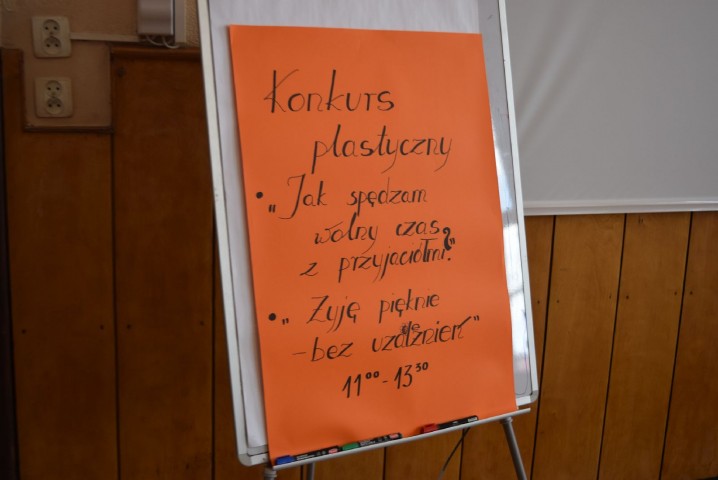 Konkurs
plastyczny
• „Jak spędzam
wolny czas
z przyjaciółmi?"
• „Żyję pięknie
-bez uzależnień"
11⁰⁰-13³⁰